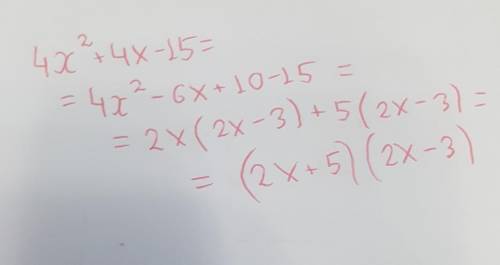 4x² + 4x - 15 =
= 4x² - 6x + 10 - 15 =
= 2x (2x - 3) + 5 (2x - 3) =
= (2x + 5) (2x - 3)